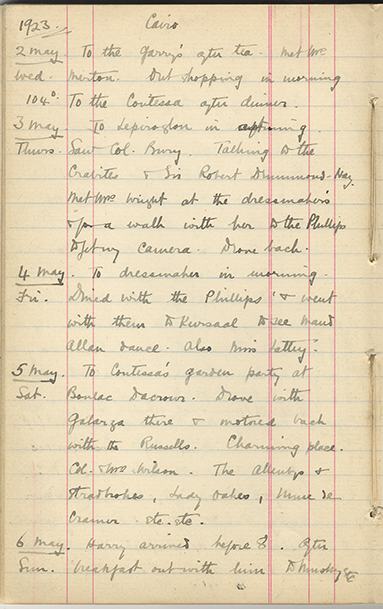 1923. Cairo
2 May. To the Garry's after tea. Met Mrs
Wed. Merton. Out shopping in morning
104°. To the Contessa after dinner.
3 May To in morning.
Thurs. Saw Col. Bury. Talking to the
Crabites & Sir Robert Drummond-Hay.
Met Mrs Wright at the dressmaker's
& for a walk with her to the Phillips
to get my camera. Drove back.
4 May. To dressmaker in morning.
Fri. Dined with the Phillips' & went
with them to Kursaal to see Maud
Allan dance. Also Miss
5 May. To Contessa's garden party at
Sat. Boulac Dacrour. Drove with
Galarza there & motored back
with the Russells. Charming place.
Col. & Mrs Wilson. The Allenbys &
Stradbrokes, Lady Oakes, Mme de
Cramer etc. etc.
6 May. Harry arrived before 8. After
Sun. breakfast out with him to